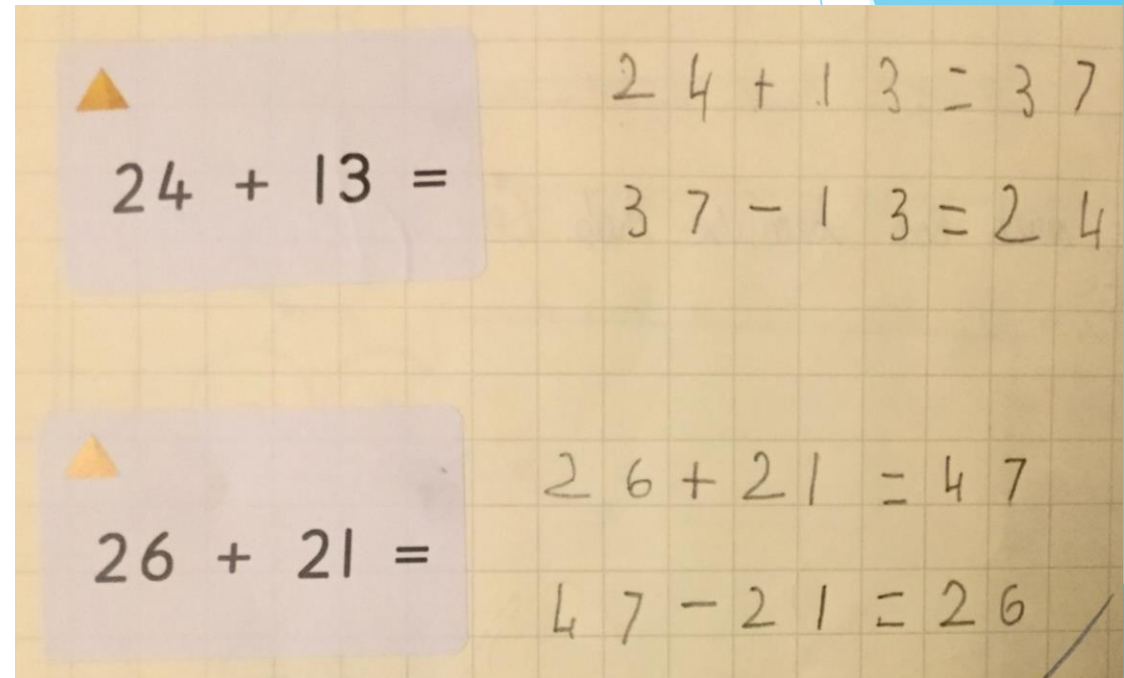 24 + 13 =
24+13=37
37-13=24
26 + 21 =
26+21=47
47-21=26